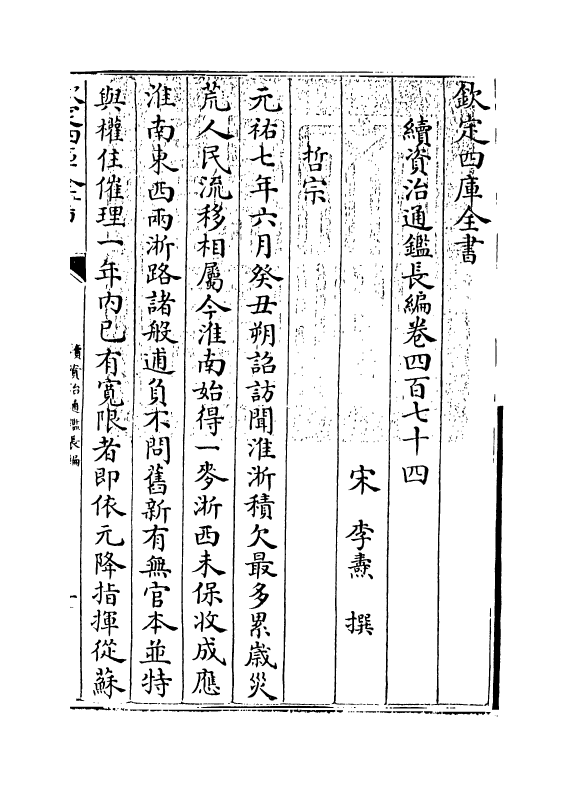 欽定四庫全書
續資治通鑑長編卷四百七十四
宋 李燾 撰
哲宗
元祐七年六月癸丑朔詔訪聞淮浙積欠最多累歲災
荒人民流移相屬今淮南始得一麥浙西未保收成應
淮南東西兩浙路諸般逋負不問舊新有無官本並特
與權住催理一年內已有寬限者即依元降指揮從蘇
欽定四庫全書
續資治通鑑長編
一